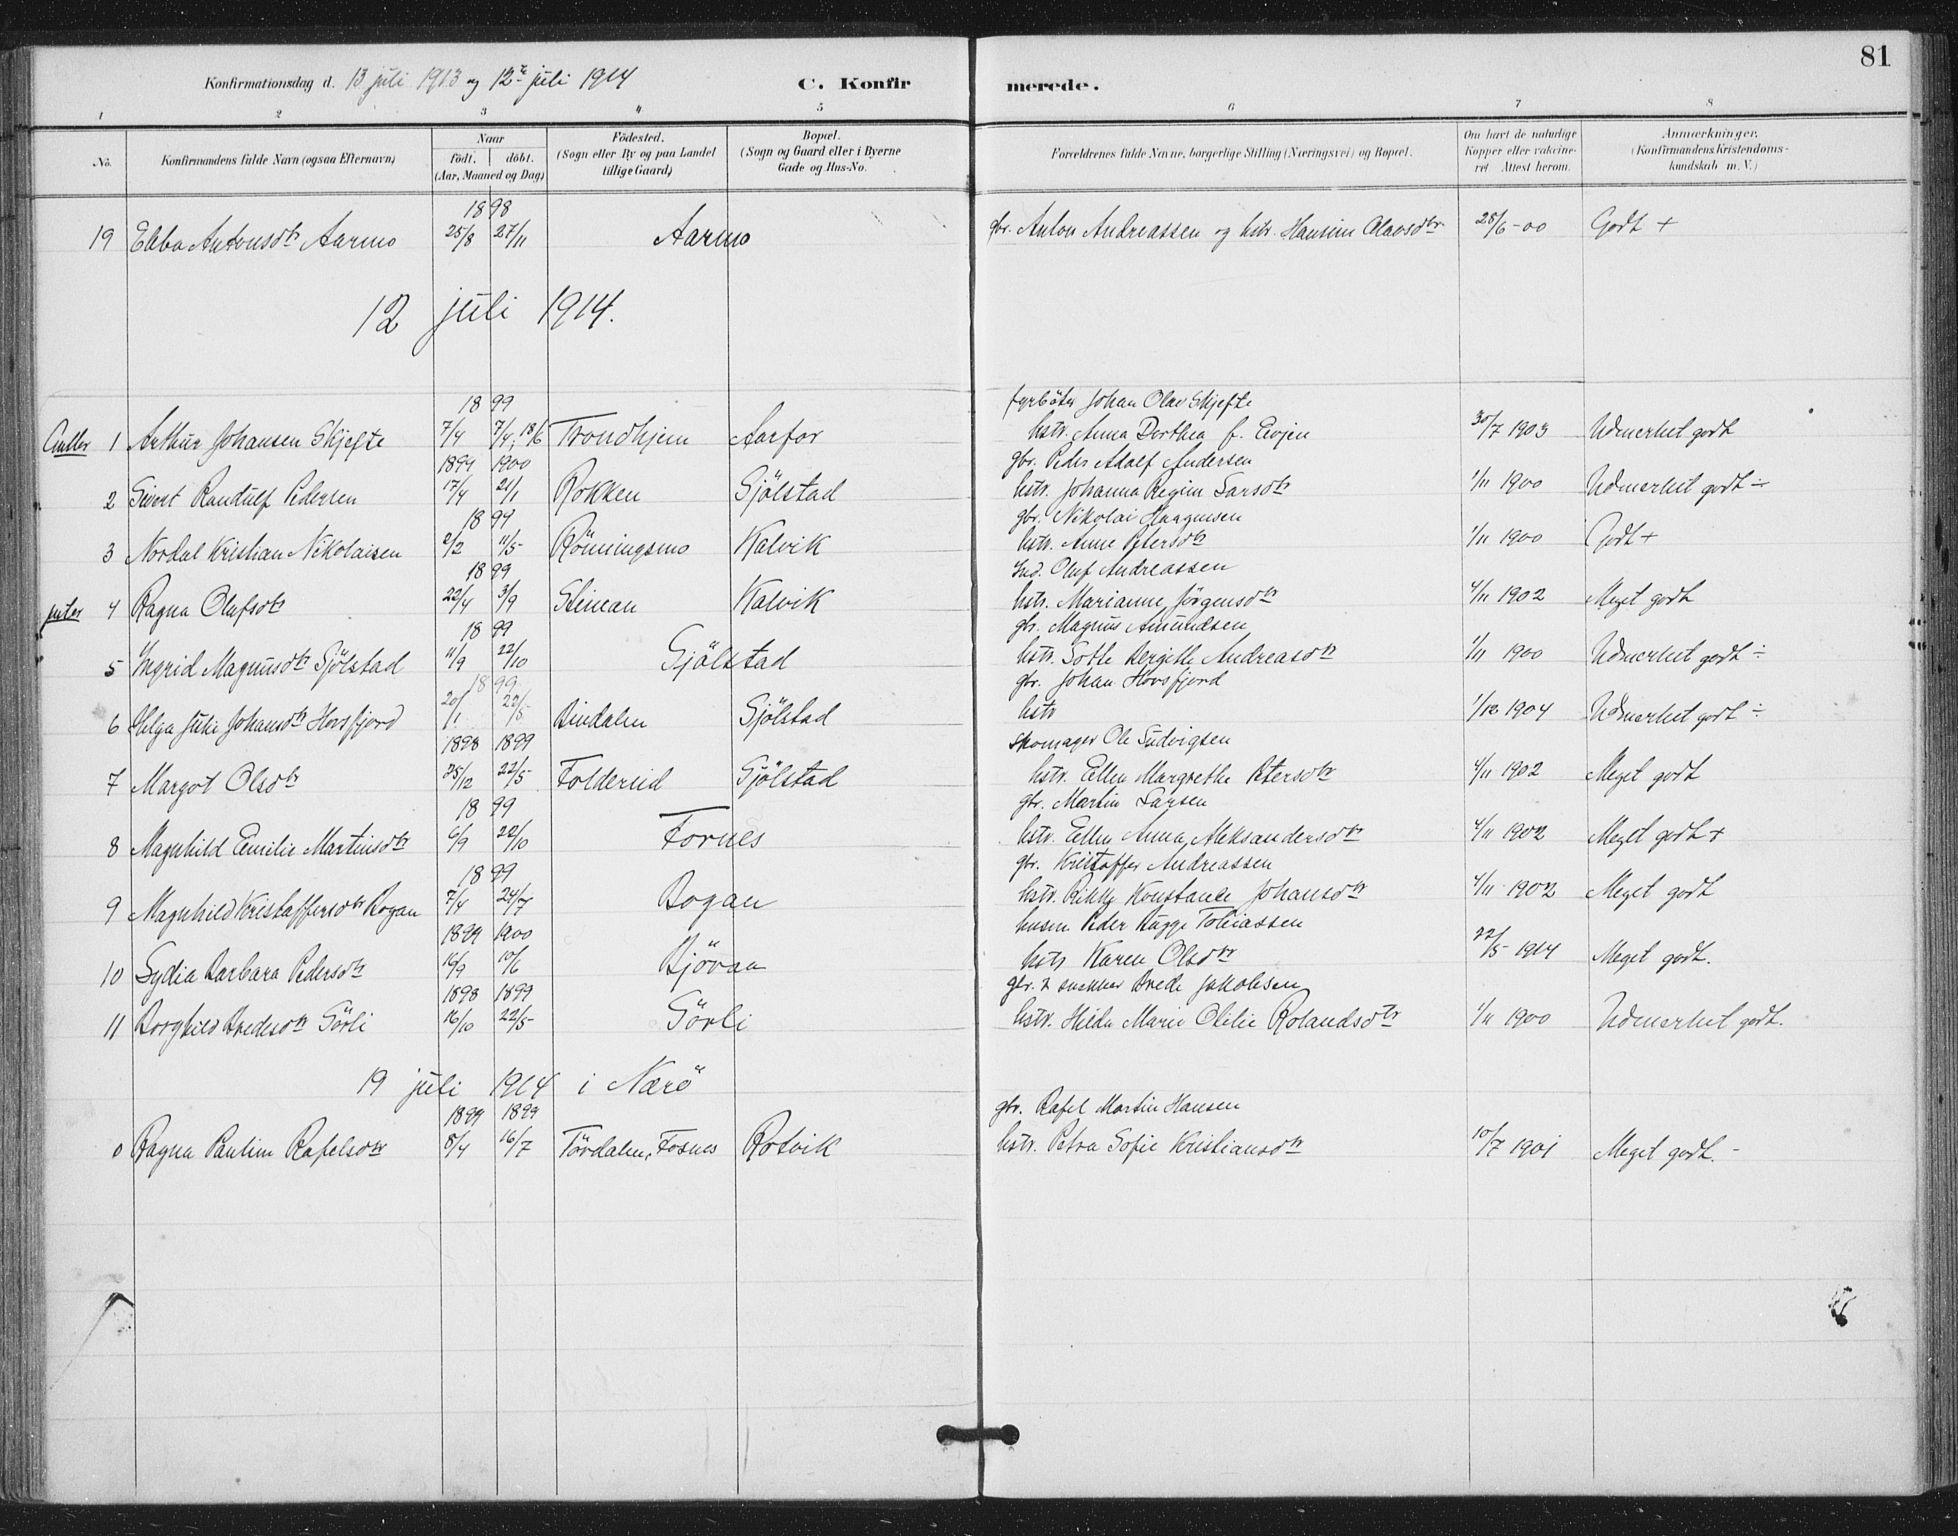 81
Konfirmationsdag d. 13 juli 1913 og 12te juli 1914 C. Konfirmerede.
1 2 3 4 5 6 7 8
No. Konfirmandens fulde Navn (ogsaa Efternavn) Naar født. døbt. (Aar, Maaned og Dag) Födested. (Sogn eller By og paa Landet tillige Gaard) Bopæl. (Sogn og Gaard eller i Byerne Gade og Hus-No. Forældrenes fulde Navne, borgerlige Stilling (Næringsvei) og Bopæl. Om havt de naturlige Kopper eller vakcineret Attest herom. Anmærkninger. (Konfirmandens Kristendomskundskab m. V.)
1898
19 Ebba Antonsdtr Aarmo 25/8 27/11 Aarmo gbr. Anton Andreassen og hstr. Hansine Olavsdtr 28/6-00 Godt +
12 juli 1914.
1899 fyrbøter Johan Olav Skjefte
1 Arthur Johansen Skjefte 7/4 7/4, 18/6 Trondhjem Aarfor hstr. Anna Dorthea f. Evjen 30/7 1903 Udmerket godt
1899 1900 gbr. Peder Adolf Andersen
2 Sivert Randulf Pedersen 17/4 21/1 Rokken Sjölstad hstr. Johanna Regine Larsdtr 1/11 1900 Udmerket godt ÷
1899 gbr. Nikolai Haagensen
3 Nordal Kristian Nikolaisen 2/2 11/5 Rönningsmo Kalvik hstr. Anne Petersdtr 1/11 1900 Godt +
1899 Ind. Oluf Andreassen
4 Ragna Olufsdtr 22/4 3/9 Steinan Kalvik hstr. Marianne Jørgensdtr 4/11 1902 Meget godt
1899 gbr. Magnus Amundsen
5 Ingrid Magnusdtr Sjölstad 11/9 22/10 Sjölstad hstr. Lotte Bergitte Andreasdtr 1/11 1900 Udmerket godt ÷
1899 gbr. Johan Horsfjord
6 Helga Julie Johansdtr Horsfjord 20/1 22/5 Bindalen Sjölstad hstr 1/12 1904 Udmerket godt ÷
1898 1899 Skomager Ole Ludvigsen
7 Margot Olsdtr 25/12 22/5 Foldereid Sjölstad hstr. Ellen Margrethe Petersdtr 4/11 1902 Meget godt
1899 gbr. Martin Larsen
8 Magnhild Emilie Martinsdtr 6/9 22/10 Fornes hstr. Ellen Anna Aleksandersdtr 4/11 1902 Meget godt +
1899 gbr. Kristoffer Andreassen
9 Magnhild Kristoffersdtr Bogan 7/4 24/7 Bogan hstr. Rikke Konstance Johansdtr 4/11 1902 Meget godt
1899 1900 husm Peder Bugge Tobiassen
10 Lydia Barbara Pedersdtr 16/9 10/6 Björaa hstr Karen Olsdtr 22/5 1914 Meget godt.
1898 1899 gbr. & snekker Brede Jakobsen
11 Borghild Bredesdtr Sörli 16/10 22/5 Sörli hstr. Hilda Marie Otilie Rolandsdtr 1/11 1900 Udmerket godt.
19 juli 1914 i Nærö
1899 1899 gbr. Rafel Martin Hansen
0 Ragna Pauline Rafelsdtr 8/4 16/7 Tördalen, Fosnes Rotvik hstr. Petra Sofie Kristiansdtr 10/7 1901 Meget godt. -